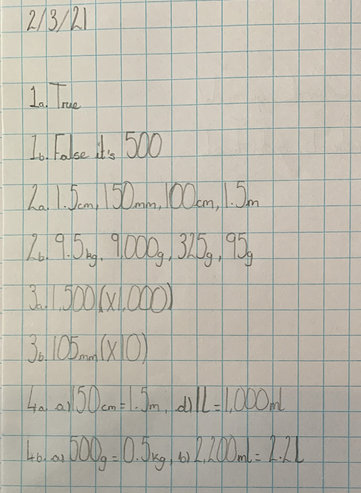 2/3/21
1a. True
1b. False it's 500
2a. 1.5cm, 150mm, 100cm, 1.5m
2b. 9.5kg, 9,000g, 325g, 95g
3a. 1,500 (x1,000)
3b. 105mm (x10)
4a. a) 150cm = 1.5m, d) 1L = 1,000ml
4b. a) 500g = 0.5kg, b) 2,200ml = 2.2L